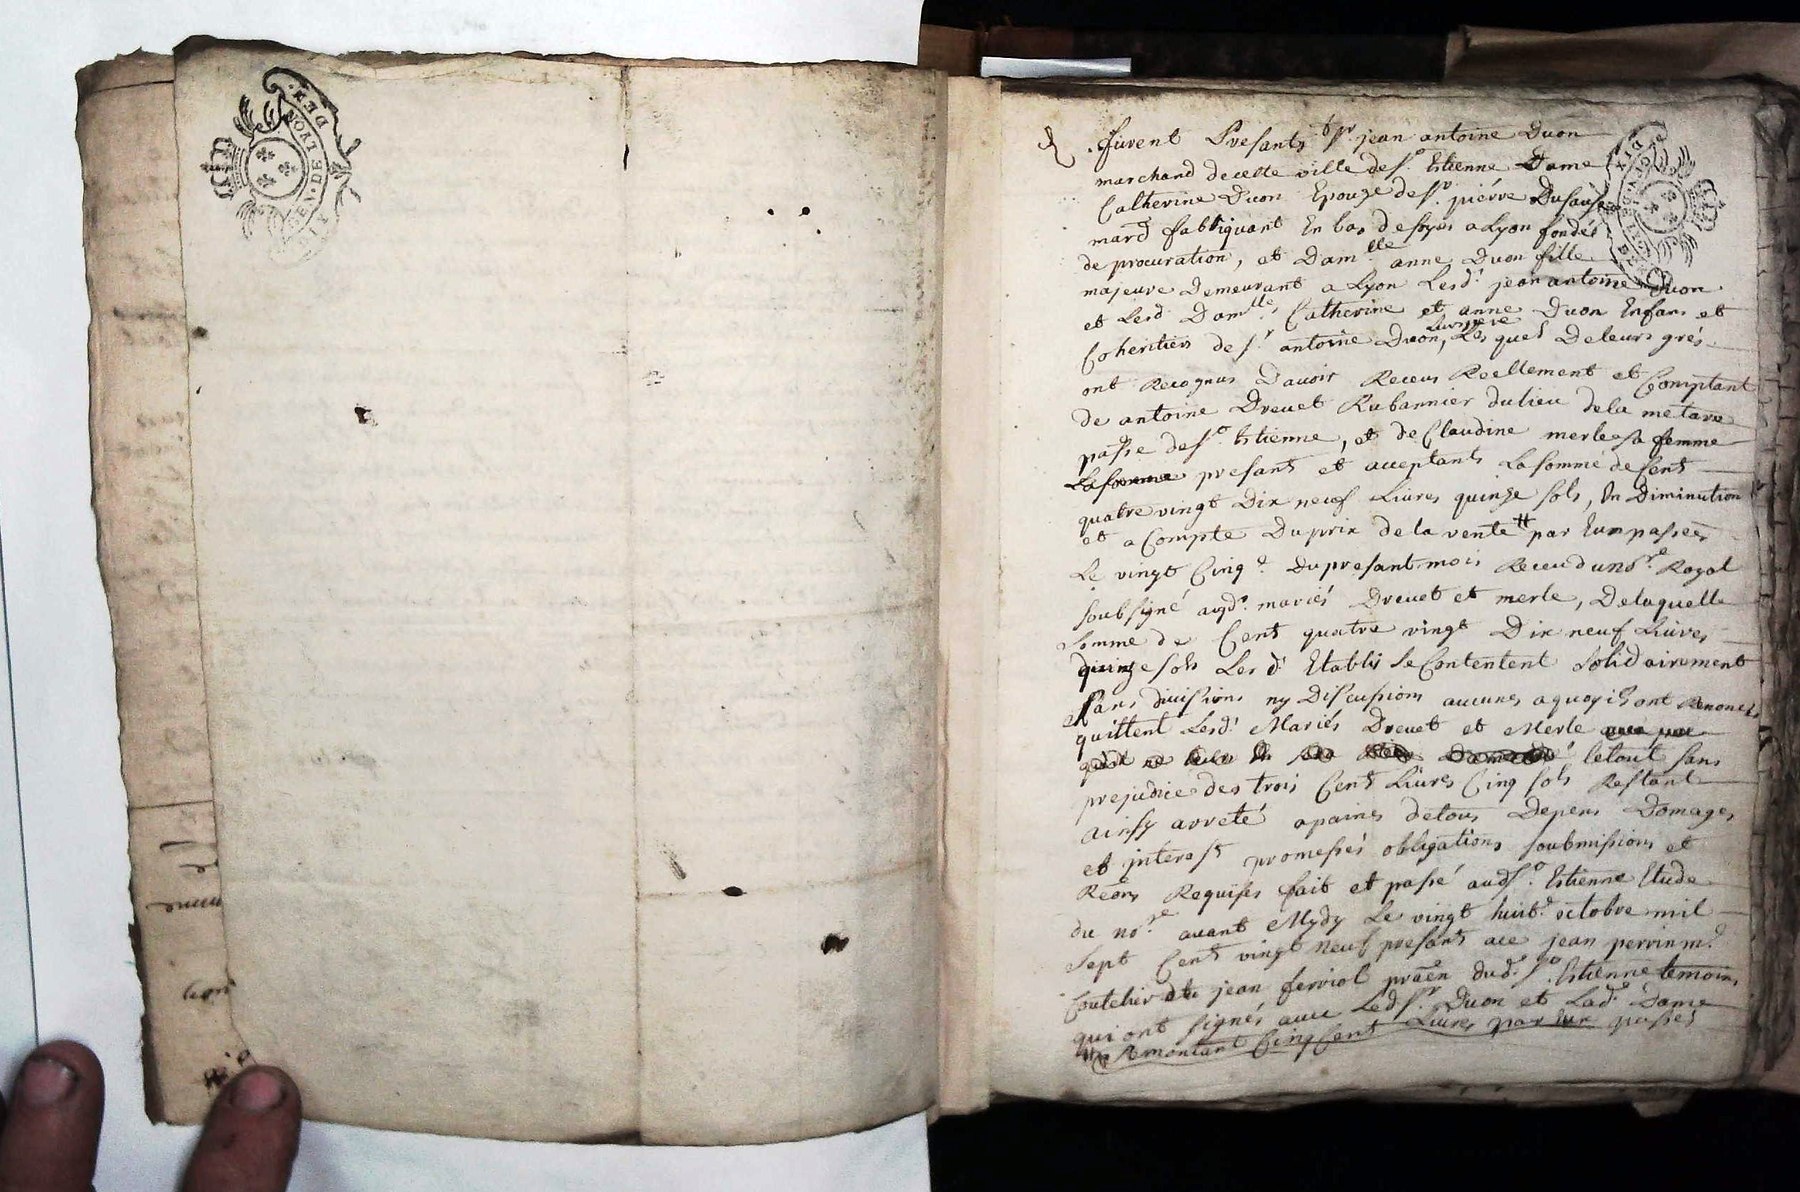 GEN. DE LYON
DIX
furent Presants Sr jean antoine Duon
marchand de cette ville de St. Estienne Dame
Catherine Duon Epouze de Sr. piérre Dusauze
mard fabriquant En bas de soyes a Lyon fondée
de procuration, et Damlle anne Duon fille
majeure Demeurant a Lyon Lesd. jean antoine Duon
et Lesd Damlle. Catherine et anne Duon Enfans et
Coheritiers de Sr antoine Duon, Leur pere Les quels De leurs grés
ont Recognus Davoir Receus Reellement et Comptant
de antoine Dreuet Rubannier du lieu de la metare
passe de St. Estienne, et de Claudine merle sa femme
presants et acceptants La somme de Cent
quatre vingt Dix neuf Livres quinze sols, En Diminution
et a Compte Du prix de la vente # par Eux passeés
Le vingt Cinqe. Du presant mois Receu du nore. Royal
soubsigné ausd. mariés Dreuet et merle, De laquelle
somme de Cent quatre vingt Dix neuf Livres
quinze sols Les d. Etablis se Contentent solidairement
sans divisions ny Discussions aucunes a quoy ils ont Renoncés
quittent Lesd. Mariés Dreuet et Merle
le tout sans
prejudice des trois Cent Livres Cinq sols Restant
ainsy arreté a paines de tous Depens Domages
et interest promesses obligations soubmissions et
Reōns Requises fait et passé aud St. Estienne Etude
du nore. avant Mydy Le vingt huite. octobre mil
sept Cent vingt neuf presants jean perrin md
Coutelier jean ferriol prãen dud. St. Estienne temoins
qui ont signés avec Led Sr Duon et Lad. Dame
# Remontant Cinq Cent Livres par Eux passés